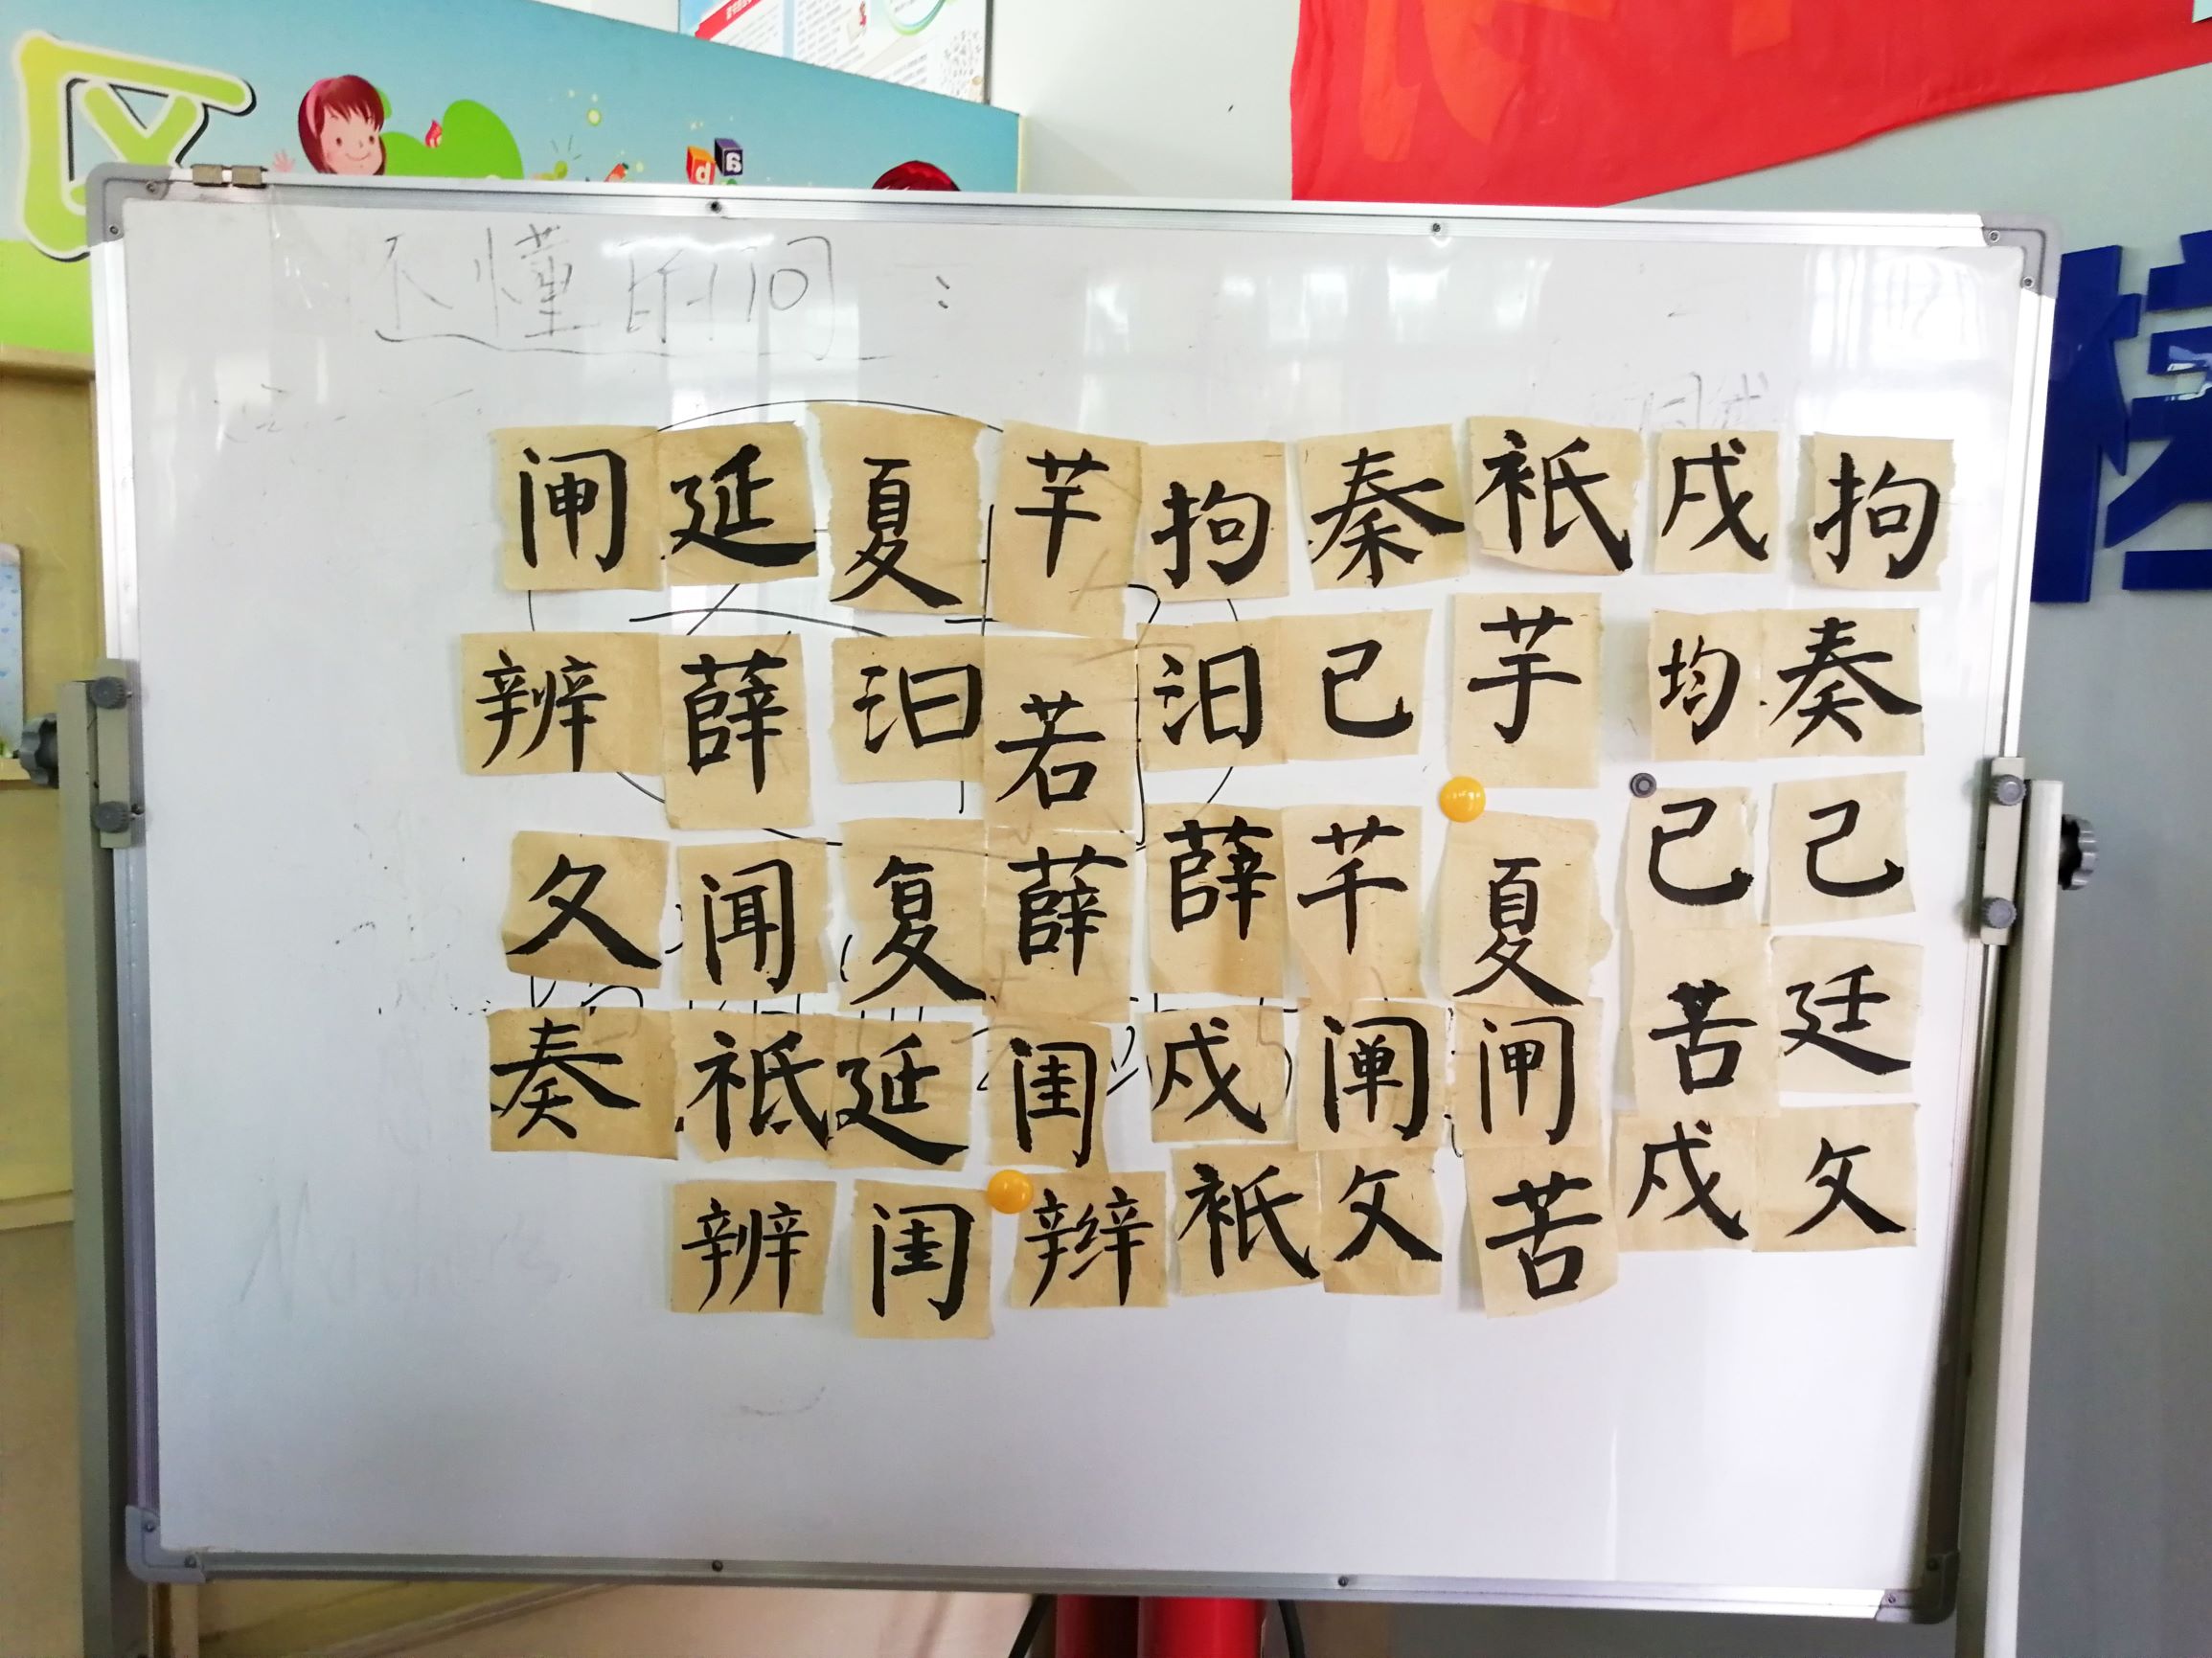 区
不懂的问：
闸 延 夏 芉 拘 秦 衹 戌 拘
辨 薛 汩 若 汨 已 芋 均 奏
夂 闻 复 薛 薛 芊 夏 已 己
奏 祗 延 闺 戍 阐 闸 苦 廷
辨 闺 辫 衹 攵 苦 戍 攵